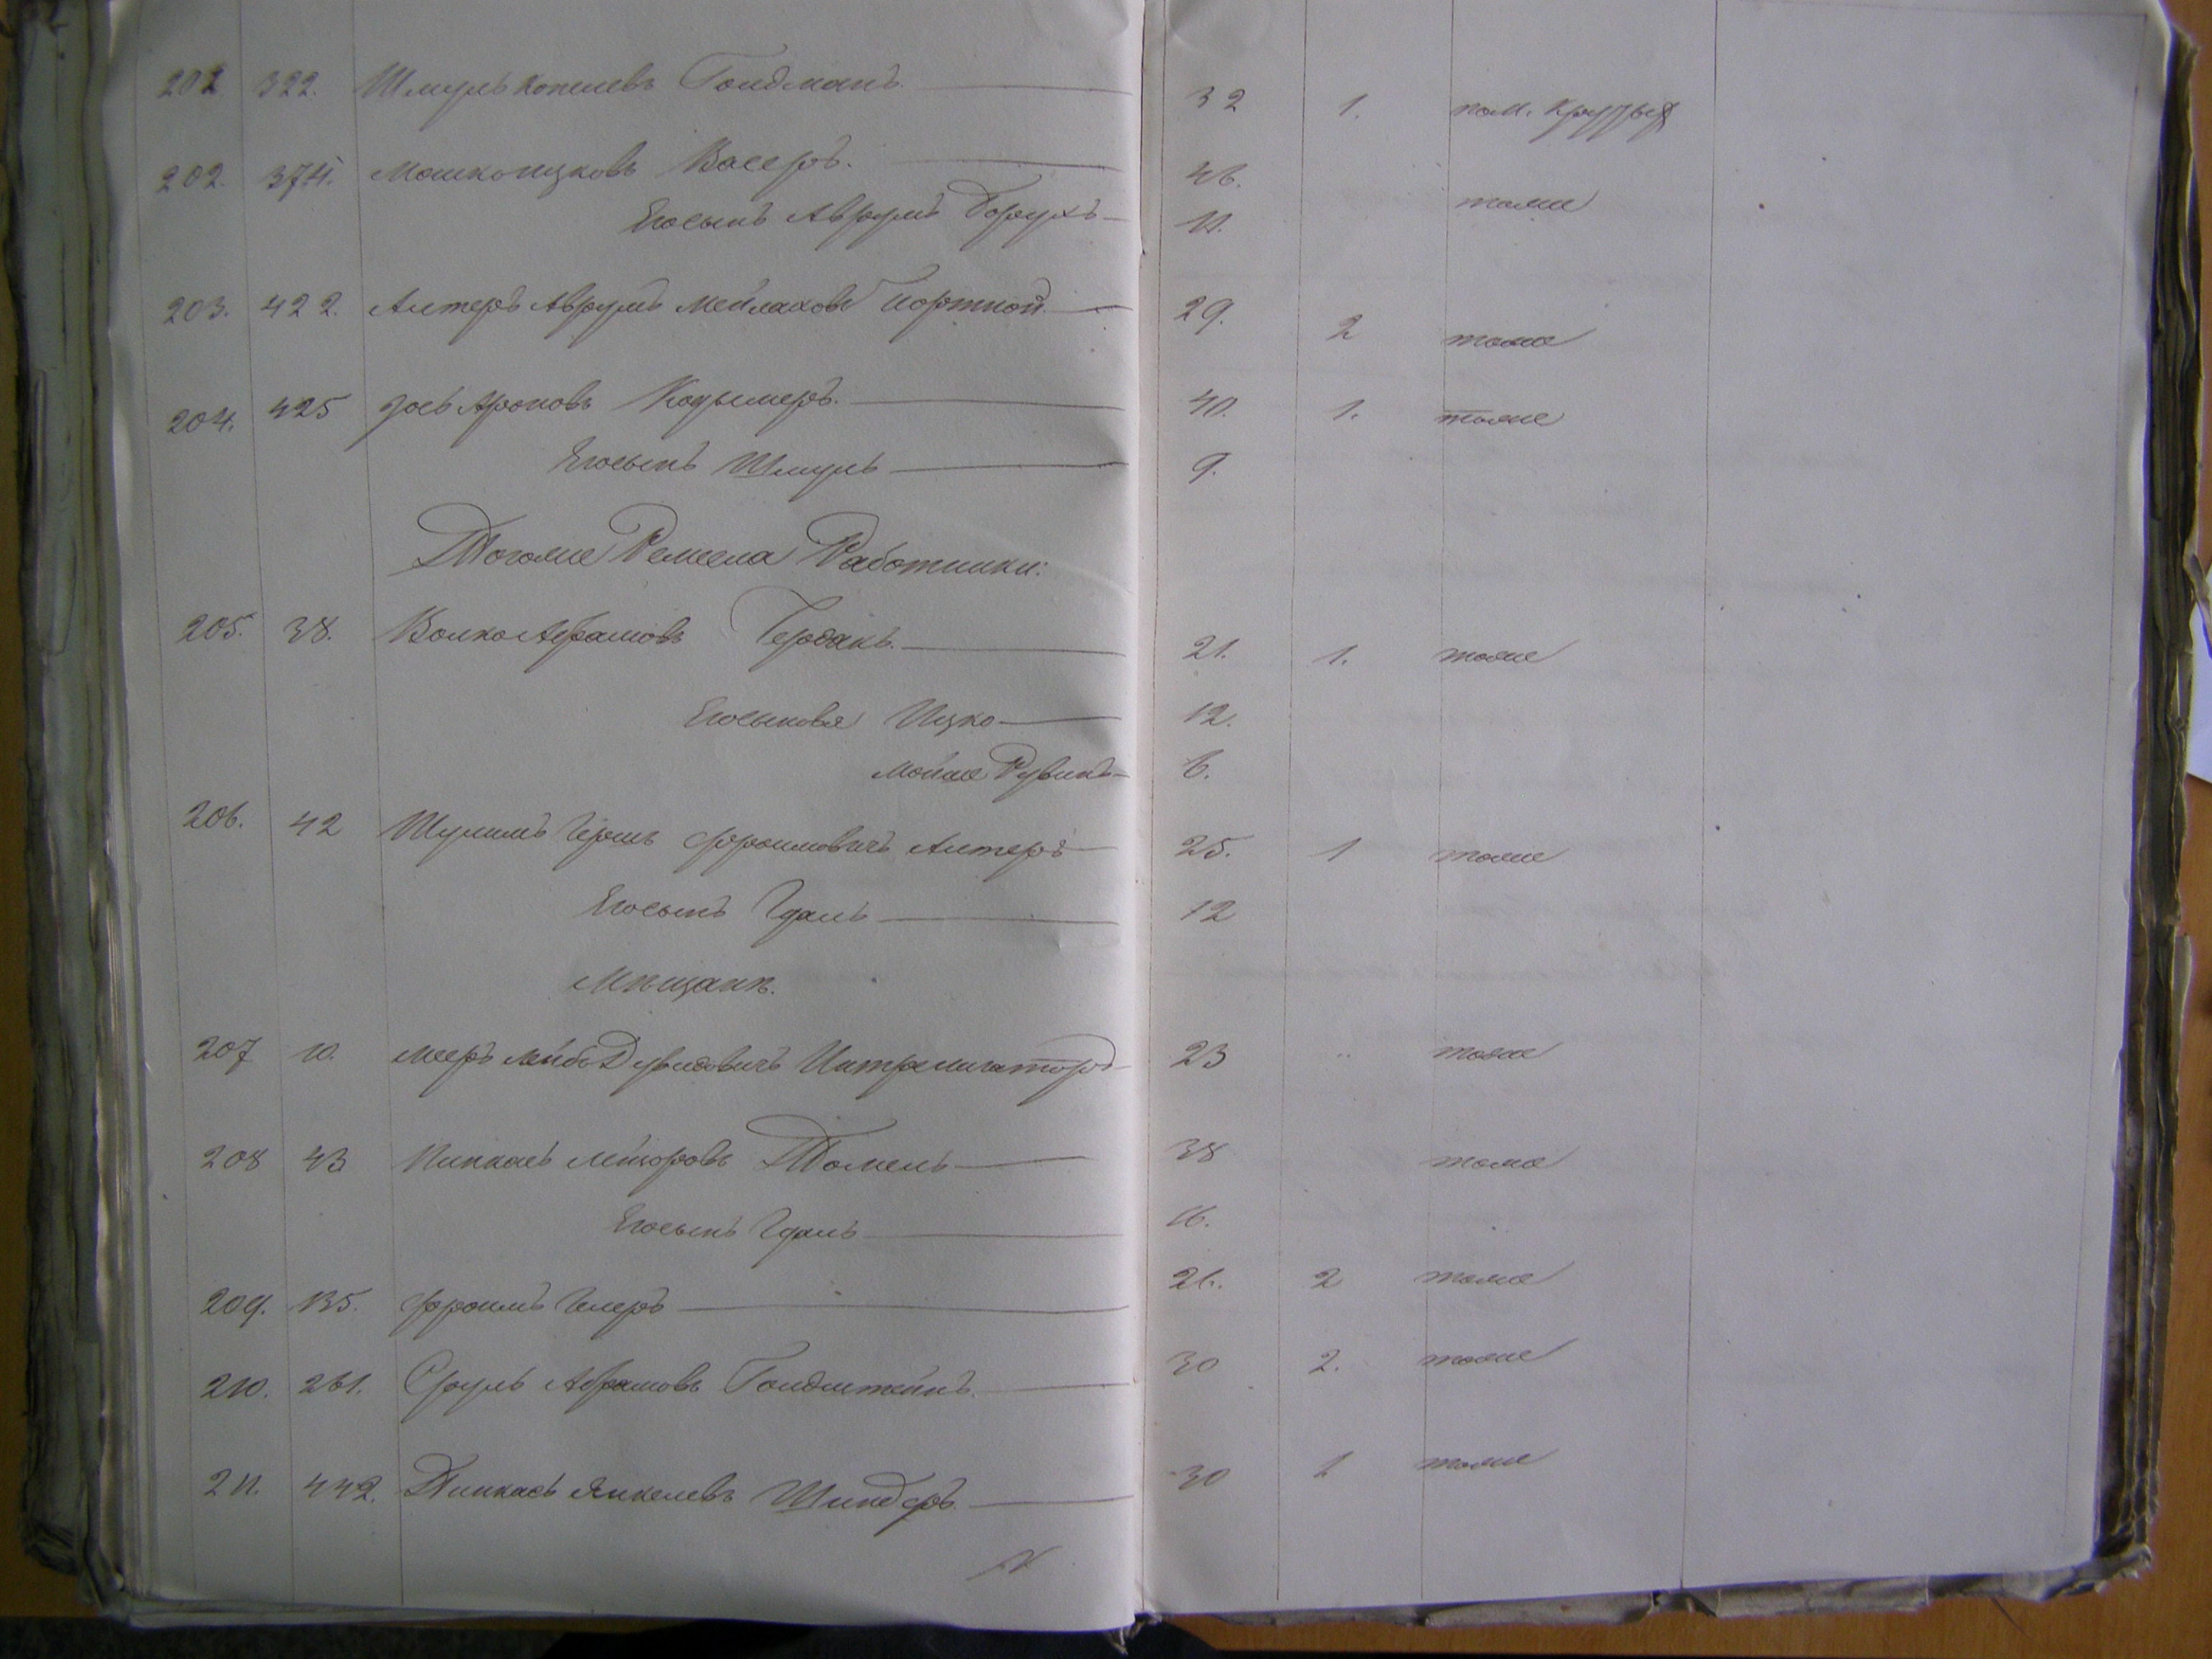 201 322. Шмуль Копелевъ Голдманъ. 32 1. пом.
202. 374. Мошко Ицковъ Васеръ. 46. тоже
Его сынъ Аврумъ Борухъ 11.
203. 422. Алтеръ Аврумъ Мейлаховъ Портной 29. 2 тоже
204. 425 Іось Ароновъ Кодымеръ. 40. 1. тоже
Его сынъ Шмуль 9.
Того же Ремесла Работники:
205. 38. Волко Абрамовъ 21. 1. тоже
Его сыновья Ицко 12.
Мойше Рувинъ 6.
206. 42 Шулимъ Гершъ Фроимовичъ Алтеръ 25. 1 тоже
Его сынъ Гдаль 12
Мѣщанъ.
207 10. Мееръ Лейбъ Дувидовичъ Интралигаторъ 23 тоже
208 43 Пинкасъ 38 тоже
Его сынъ Гдаль 16.
209. 135. Фроимъ 26. 2 тоже
210. 261. Сруль Абрамовъ Голдштейнъ. 30 2. тоже
211. 442. Пинкасъ Янкелевъ Шнидеръ 30 1 тоже